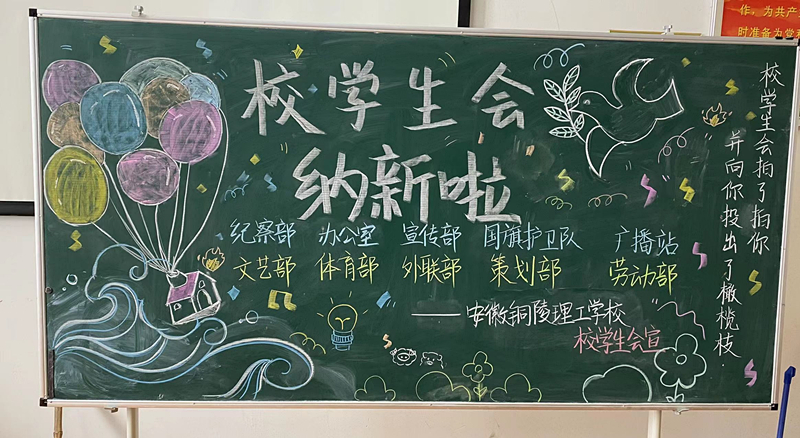 校学生会
纳新啦
纪察部 办公室 宣传部 国旗护卫队 广播站
文艺部 体育部 外联部 策划部 劳动部
——安徽铜陵理工学校
校学生会宣
校学生会拍了拍你
并向你投出了橄榄枝.
作，为共产
时准备为党